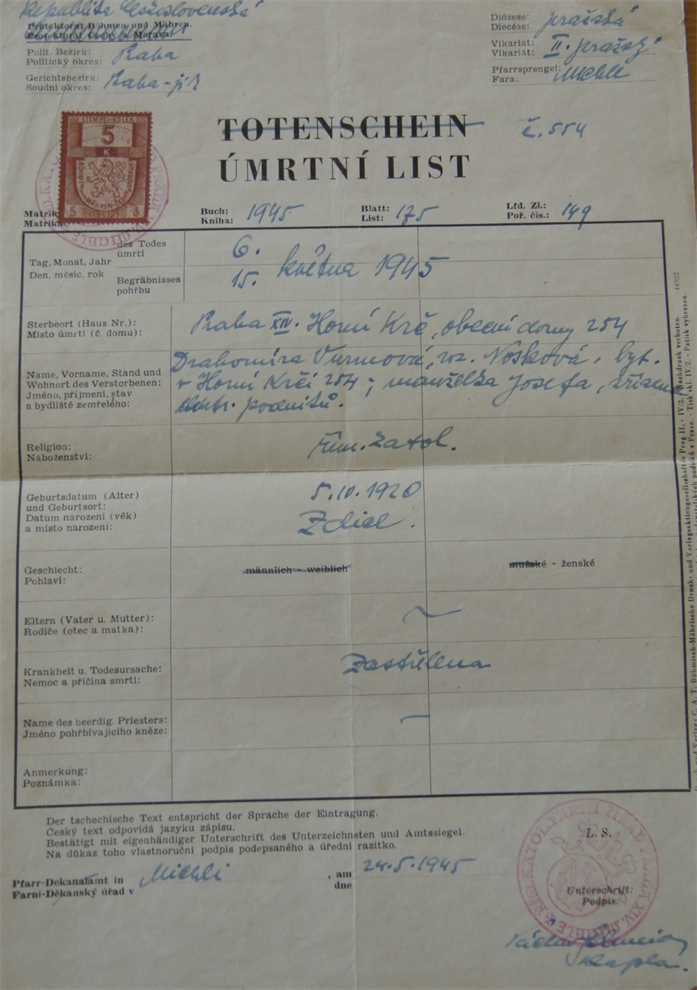 Republika Československá
Protektorat Böhmen und Mähren.
Protektorát Čechy a Morava.
Polit. Bezirk:
Politický okres: Praha
Gerichtsbezirk:
Soudní okres: Praha-jih
Diözese:
Diecése: pražská
Vikariat:
Vikariát: II. pražský
Pfarrsprengel:
Fara: Michle
TOTENSCHEIN
č. 554
ÚMRTNÍ LIST
5 K
Matrik
Matrika
Buch:
Kniha: 1945
Blatt:
List: 175
Lfd. Zl.:
Poř. čís.: 149
Tag, Monat, Jahr
Den, měsíc, rok
des Todes
úmrtí
6.
Begräbnisses
pohřbu
15. května 1945
Sterbeort (Haus Nr.):
Místo úmrtí (č. domu):
Praha XIV. Horní Krč, obecní domy 254
Name, Vorname, Stand und
Wohnort des Verstorbenen:
Jméno, přijmení, stav
a bydliště zemřelého:
Drahomíra Vurmová, roz. Nosková, byt.
v Horní Krči 254; manželka Josefa, zřízence
elektr. podniků.
Religion:
Náboženství:
řím. katol.
Geburtsdatum (Alter)
und Geburtsort:
Datum narození (věk)
a místo narození:
5.10.1920
Zdice.
Geschlecht:
Pohlaví:
männlich - weiblich
mužské - ženské
Eltern (Vater u. Mutter):
Rodiče (otec a matka):
Krankheit u. Todesursache:
Nemoc a příčina smrti:
Zastřelena
Name des beerdig. Priesters:
Jméno pohřbívajícího kněze:
Anmerkung:
Poznámka:
Der tschechische Text entspricht der Sprache der Eintragung.
Český text odpovídá jazyku zápisu.
Bestätigt mit eigenhändiger Unterschrift des Unterzeichneten und Amtssiegel.
Na důkaz toho vlastnoruční podpis podepsaného a úřední razítko.
L. S.
Pfarr-Dekanalamt in
Farní-Děkanský úřad v Michli
, am
dne 24.5.1945
Unterschrift:
Podpis:
Václav
kapla.